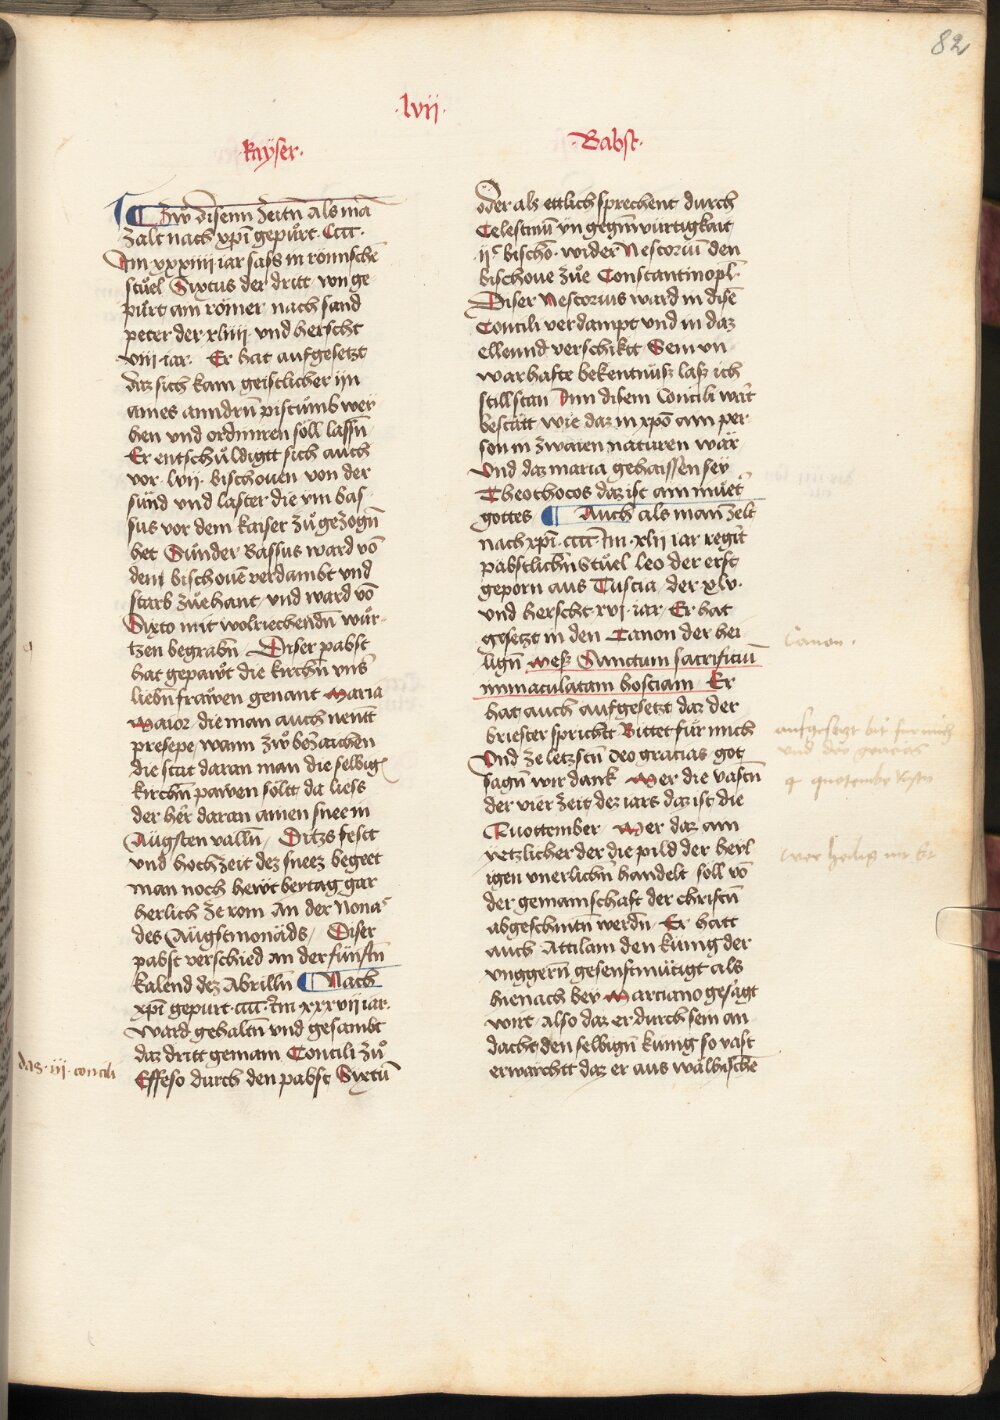 82
·lvii·
·kaÿser·
¶ Zwͦ disenn zeitn̄ als mā
zalt nach xp̄i gepuͦrt · CCCC ·
Im xxxiiii iar sass in romischē
stuͤel Sixtus der dritt von ge
puͦrt ain römer nach sand
peter der xliiii und herscht
viii iar · Er hat aufgesetzt
daz sich kain geistlicher im
aines anndrn̄ pistuͦmb wer
ben und ordiniren soll lassn̄
Er entschuͤldigtt sich auch
vor · lvii · bischouen von der
sünd und laster die im bas
sus vor dem kaiser zuͦ gezogn̄
het Sunder Bassus ward vō
dem bischouē verdambt und
starb zuͤehant und ward vō
Sixto mit wolriechendn̄ wuͤr
tzen begrabn̄ Diser pabst
hat gepawt die kirchn̄ vns̄
liebn̄ frawen genant Maria
Maior die man auch nentt
presepe wann zwͦ bezaichen
die stat daran man die selbig
kirchn̄ pawen söltt da liess
der her̄ daran ainen snee in
Augsten vallñ Ditzs festt
und hochzeit dez sneez begeet
man noch hewt beytag gar
herlich ze rom An der Nonas
des Augstmonads / Diser
pabst verschied an der fünftn̄
kalend dez Abrilln̄ ¶ Nach
xp̄i gepurt · cccc · Im xxxvii iar ·
ward gehaltn̄ und gesambt
daz dritt gemain Concili zuͦ
Effeso durch den pabst Sixtū
das · iii · concili
·Babst·
oder als ettlich sprechent durch
Celestinū vn̄ gegin̄würtigkait
·iiᶜ bischo · wider Nestoriū den
bischoue zuͤe Constantinopl̄
Diser Nestorius ward in disē
Concili verdampt vnd in daz
ellennd verschiktt Sein vn
warhafte bekentnuͤss lass ich
still stan Inn disem Concili war̄
bestatt wie daz in xp̄o ain per
son in zwaien naturen waͤr
Und daz maria gehaissen sey
Theothocos daz ist ain muͤet̄
gottes ¶ Auch als man zelt
nach xp̄i · cccc · Im · xlii iar regir̄t
pabstlichn̄ stuͤel leo der erst
geporn aus Tuscia / der xlv ·
und herscht xvi · iar · Er hat
gesetzt in den Canon der hei
lign̄ mess Sanctum sacrificiū
immaculatam hostiam Er
hat auch aufgesetzt daz der
briester sprichtt Bittet für mich
Und ze letzstn̄ Deo gracias got
sagn̄ wir dank Mer die vastn̄
der vier zeit dez iars daz ist die
Quottember / Mer daz ain
yetzlicher der die pild der heyl
igen vnerlichn̄ handelt soll vō
der gemainschaft der christn̄
abgeschnitn̄ werdn̄ · Er hatt
auch Attilam den kuͤnig der
vnggern̄ gesenftmuͤtigt als
hienach bey Marciano gesagt
wirt · also daz er durch sein an
dacht den selbign̄ kunig so vast
erwaichtt daz er aus waͤlhischē
Canon ·
aufgesetzt bit fur mich
vnd deo gracias
4 quotember